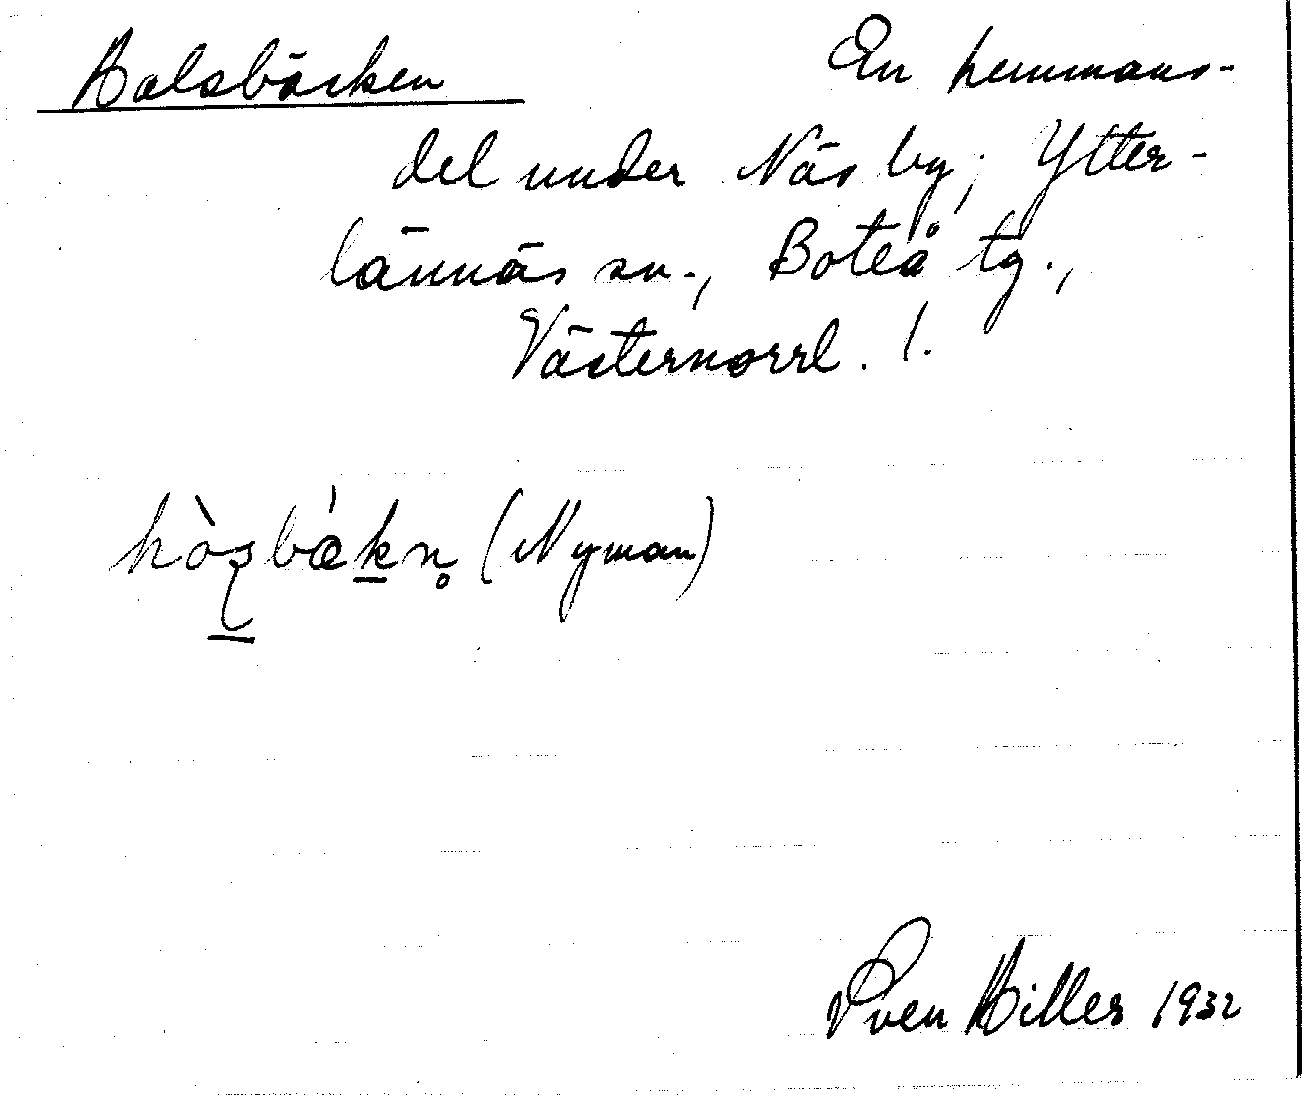 Holsbäcken En hemmans-
del under Näs by, Ytter-
lännäs sn., Boteå tg.,
Västernorrl. l.
(Nyman)
Sven Hiller 1932